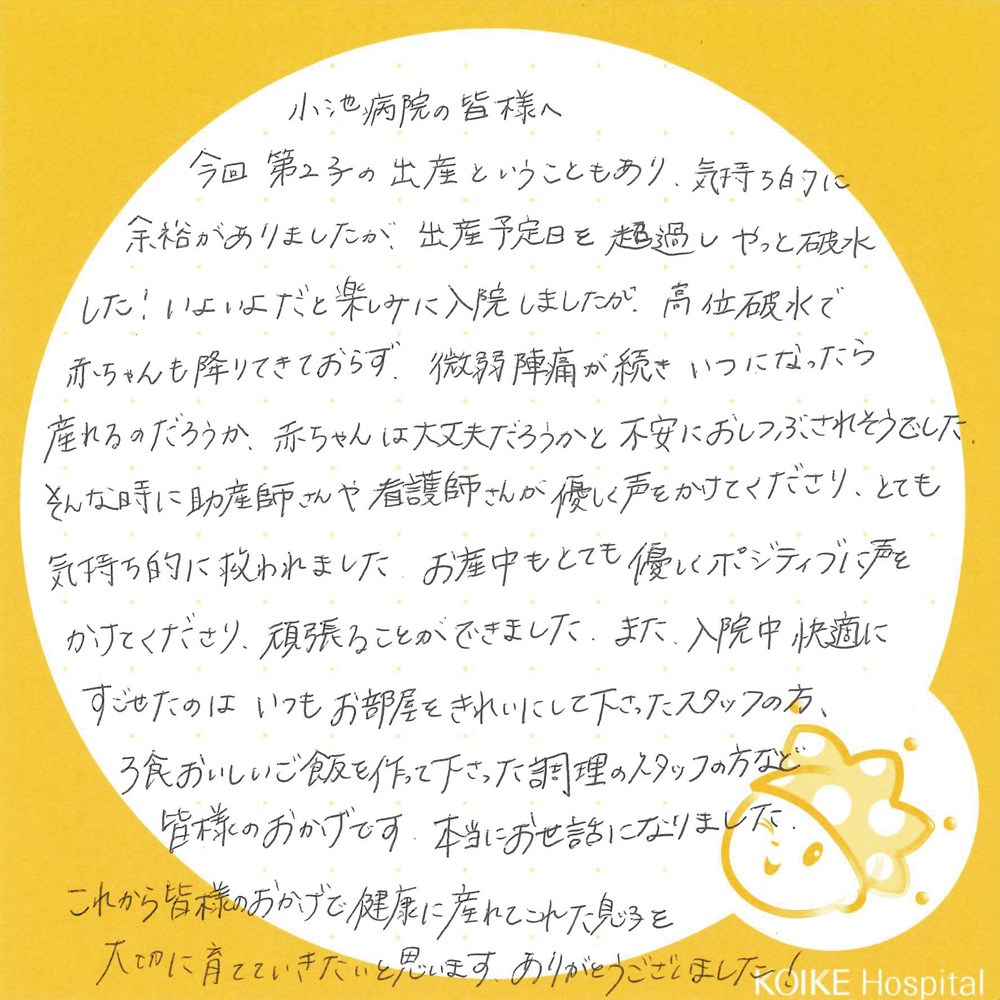 小池病院の皆様へ
今回 第2子の出産ということもあり、気持ち的に
余裕がありましたが、出産予定日を超過しやっと破水
した！いよいよだと楽しみに入院しましたが、高位破水で
赤ちゃんも降りてきておらず、微弱陣痛が続きいつになったら
産れるのだろうか、赤ちゃんは大丈夫だろうかと不安におしつぶされそうでした。
そんな時に助産師さんや看護師さんが優しく声をかけてくださり、とても
気持ち的に救われました。お産中もとても優しくポジティブに声を
かけてくださり、頑張ることができました。また、入院中快適に
すごせたのはいつもお部屋をきれいにして下さったスタッフの方、
3食おいしいご飯を作って下さった調理のスタッフの方など
皆様のおかげです。本当にお世話になりました。
これから皆様のおかげで健康に産れてこれた息子を
大切に育てていきたいと思います。ありがとうございました！
KOIKE Hospital